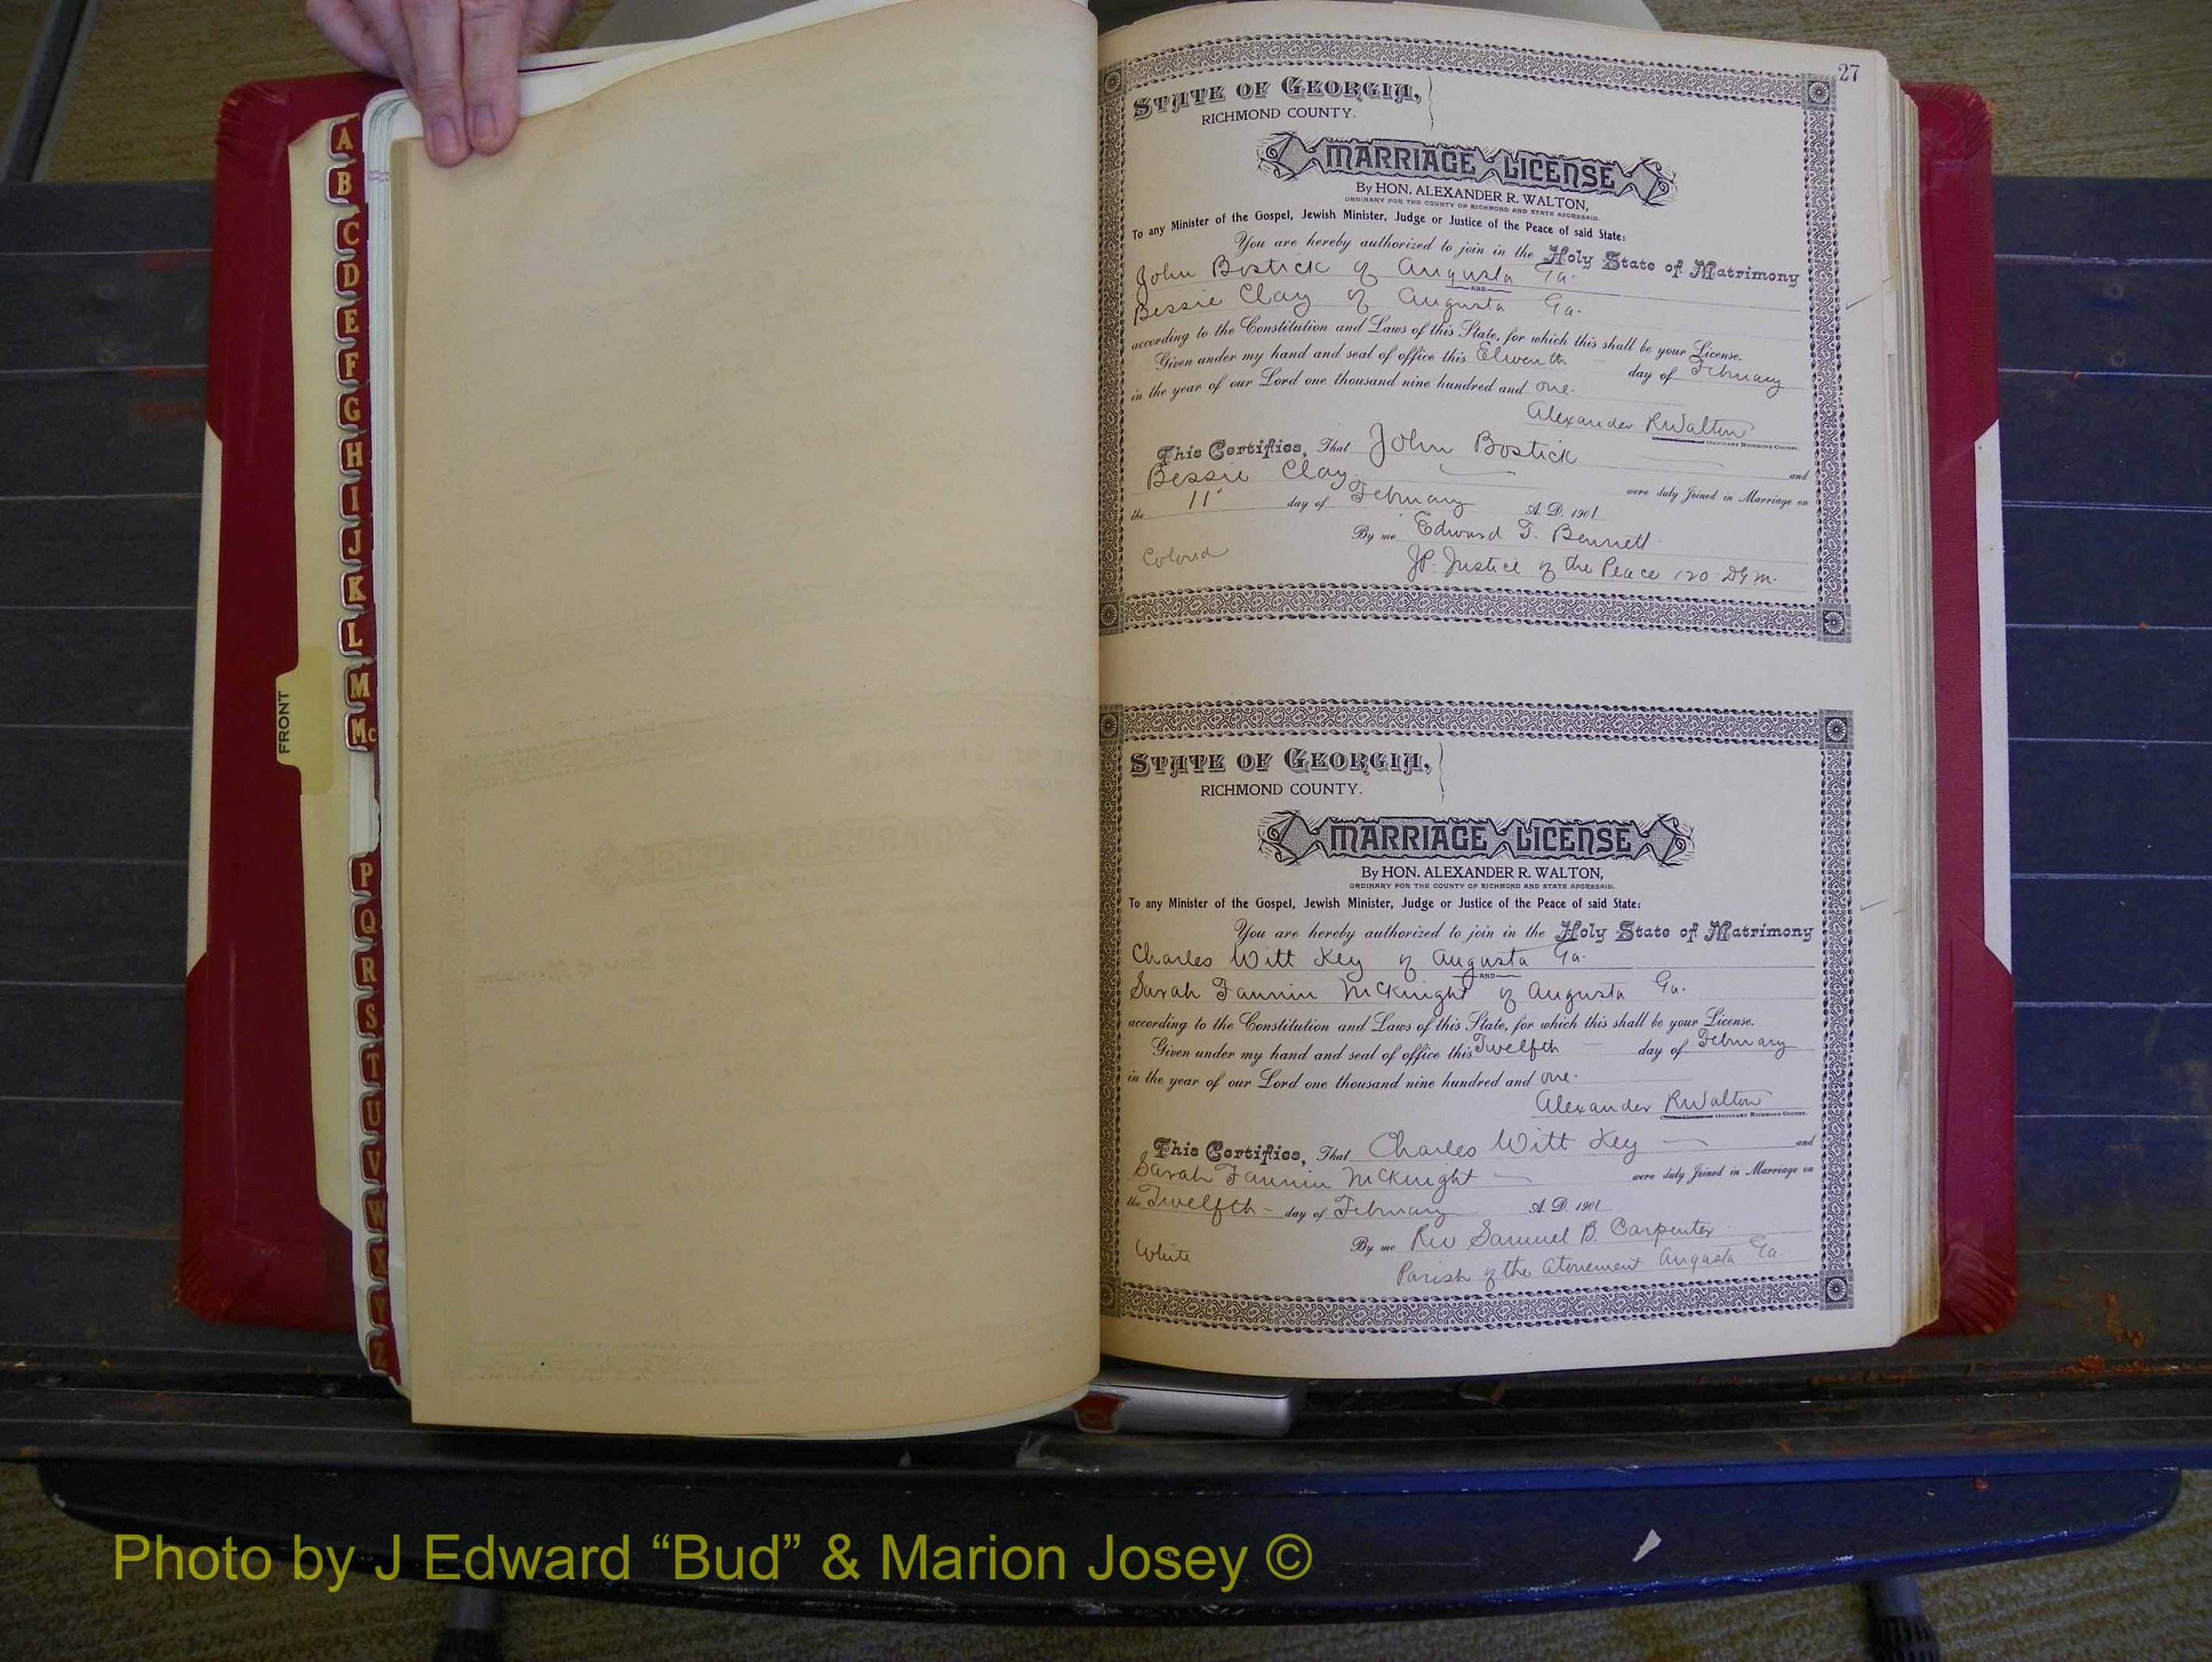 A
B
C
D
E
F
G
H
I
J
K
L
M
Mc
FRONT
P
Q
R
S
T
U
V
W
X
Y
Z
27
STATE OF GEORGIA,
RICHMOND COUNTY.
MARRIAGE LICENSE
By HON. ALEXANDER R. WALTON,
ORDINARY FOR THE COUNTY OF RICHMOND AND STATE AFORESAID.
To any Minister of the Gospel, Jewish Minister, Judge or Justice of the Peace of said State:
You are hereby authorized to join in the Holy State of Matrimony
John Bostick of Augusta Ga.
AND
Bessie Clay of Augusta Ga.
according to the Constitution and Laws of this State, for which this shall be your License.
Given under my hand and seal of office this Eleventh day of February
in the year of our Lord one thousand nine hundred and one.
Alexander R Walton
ORDINARY RICHMOND COUNTY.
This Certifies, That John Bostick and
Bessie Clay were duly Joined in Marriage on
the 11" day of February A. D. 1901
By me Edward T. Bennett
Colored JP. Justice of the Peace 120 DGM.
STATE OF GEORGIA,
RICHMOND COUNTY.
MARRIAGE LICENSE
By HON. ALEXANDER R. WALTON,
ORDINARY FOR THE COUNTY OF RICHMOND AND STATE AFORESAID.
To any Minister of the Gospel, Jewish Minister, Judge or Justice of the Peace of said State:
You are hereby authorized to join in the Holy State of Matrimony
Charles Witt Key of Augusta Ga.
AND
Sarah Fannin McKnight of Augusta Ga.
according to the Constitution and Laws of this State, for which this shall be your License.
Given under my hand and seal of office this Twelfth day of February
in the year of our Lord one thousand nine hundred and one.
Alexander R Walton
ORDINARY RICHMOND COUNTY.
This Certifies, That Charles Witt Key and
Sarah Fannin McKnight were duly Joined in Marriage on
the Twelfth day of February A. D. 1901
By me Rev Samuel B. Carpenter
White Parish of the Atonement Augusta Ga
Photo by J Edward “Bud” & Marion Josey ©